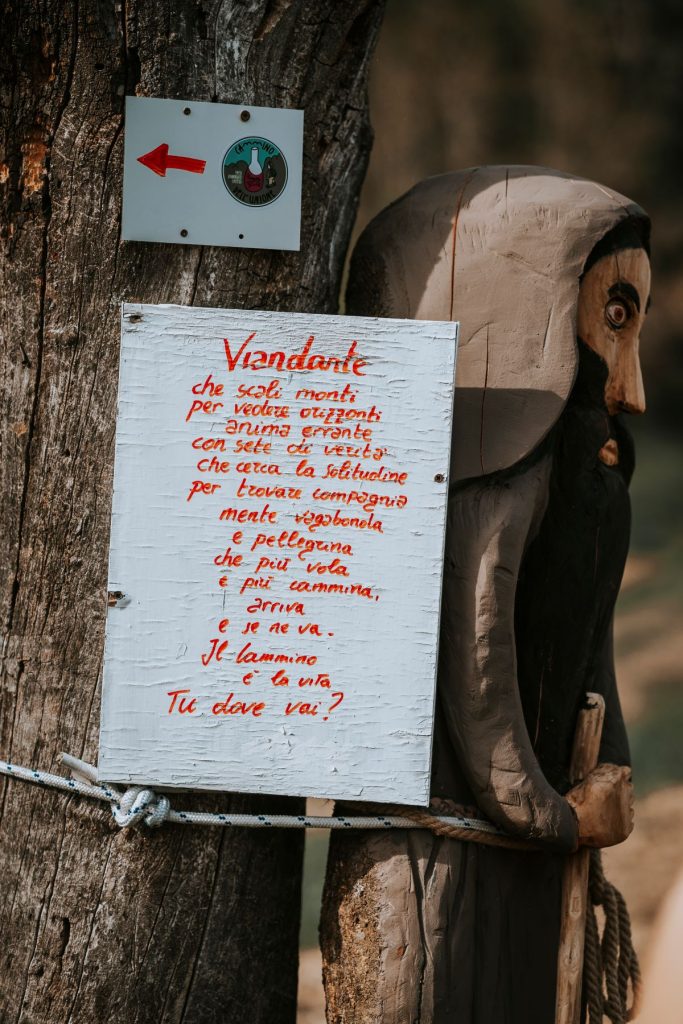 CAMMINO
DELL'UNIONE
Viandante
che scali monti
per vedere orizzonti
anima errante
con sete di verità
che cerca la solitudine
per trovare compagnia
mente vagabonda
e pellegrina
che più vola
e più cammina,
arriva
e se ne va.
Il Cammino
è la vita
Tu dove vai?